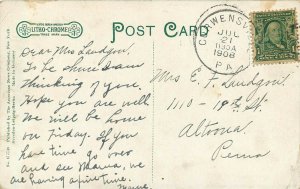 POST CARD
LITHO-CHROME
CURWENSVILLE
JUL
21
1130A
1908
PA.
Dear Mrs Landgon.
To be
thinking of you.
Hope you are well
We will be home
on Friday. If you
have time go over
and see Mama, we
are having a fine time.
Mrs E. F. Landgon
1110 - 18th St
Altoona
Penna
Published by The American News Company, New York